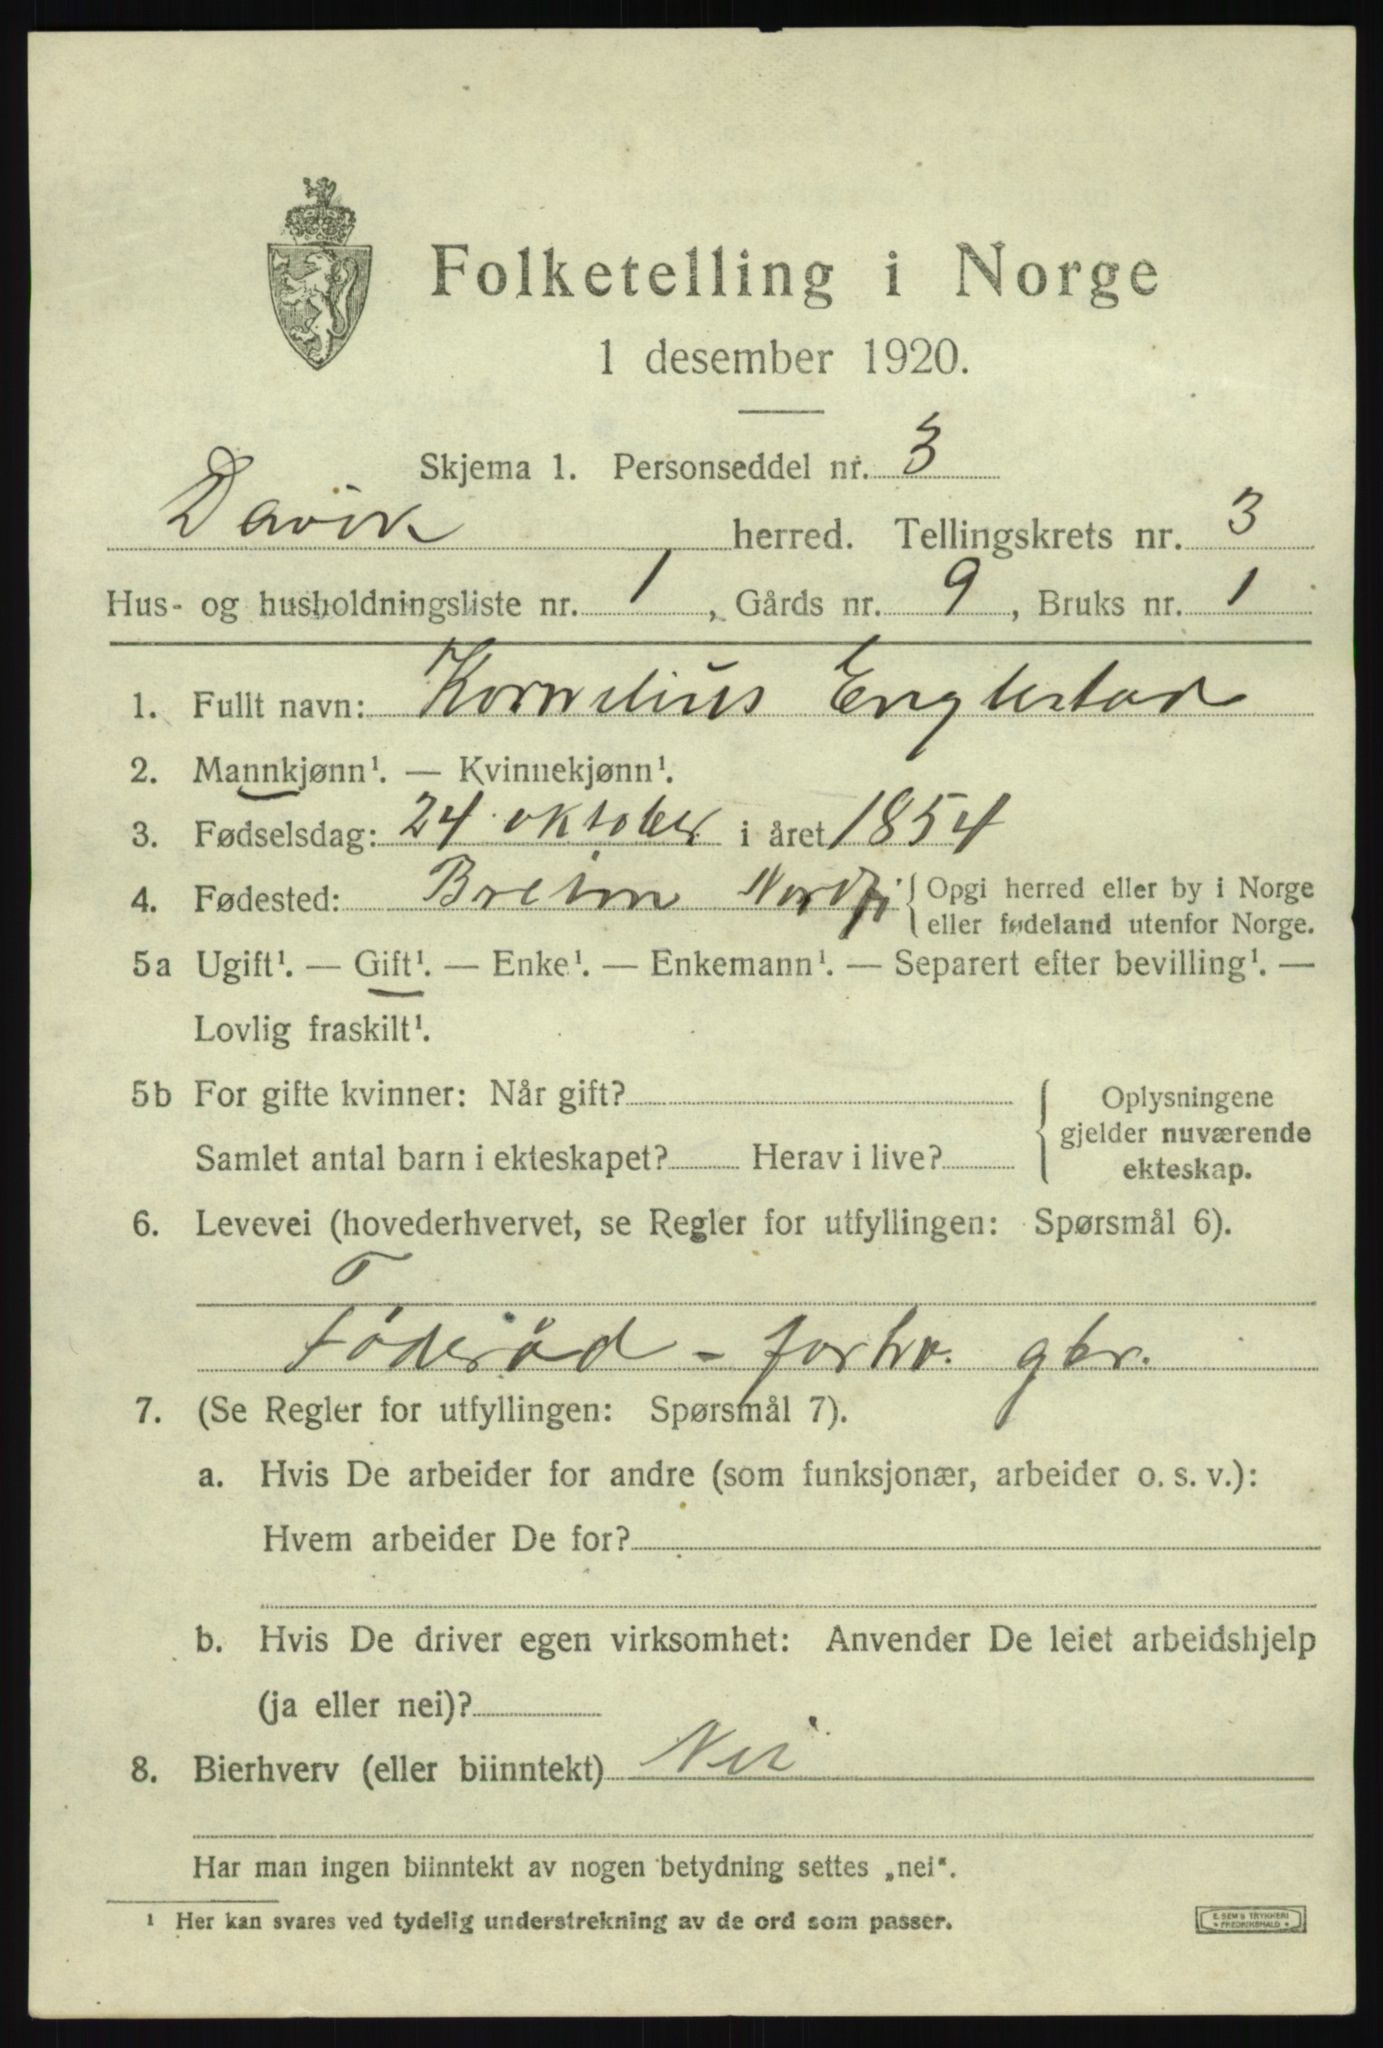 Folketelling i Norge
1 desember 1920.
Skjema 1. Personseddel nr. 3
Davik herred. Tellingskrets nr. 3
Hus- og husholdningsliste nr. 1, Gårds nr. 9, Bruks nr. 1
1. Fullt navn: Kornelius Englestad
2. Mannkjønn¹. — Kvinnekjønn¹.
3. Fødselsdag: 24 oktober i året 1854
4. Fødested: Breim Nordfj. { Opgi herred eller by i Norge
eller fødeland utenfor Norge.
5a Ugift¹. — Gift¹. — Enke¹. — Enkemann¹. — Separert efter bevilling¹. —
Lovlig fraskilt¹.
5b For gifte kvinner: Når gift?
Samlet antal barn i ekteskapet? Herav i live?
{ Oplysningene
gjelder nuværende
ekteskap.
6. Levevei (hovederhvervet, se Regler for utfyllingen: Spørsmål 6).
F
Føderåd - forhv. gbr.
7. (Se Regler for utfyllingen: Spørsmål 7).
a. Hvis De arbeider for andre (som funksjonær, arbeider o. s. v.):
Hvem arbeider De for?
b. Hvis De driver egen virksomhet: Anvender De leiet arbeidshjelp
(ja eller nei)?
8. Bierhverv (eller biinntekt) Nei
Har man ingen biinntekt av nogen betydning settes „nei“.
¹ Her kan svares ved tydelig understrekning av de ord som passer.
E. SEM'S TRYKKERI
* FREDRIKSHALD *